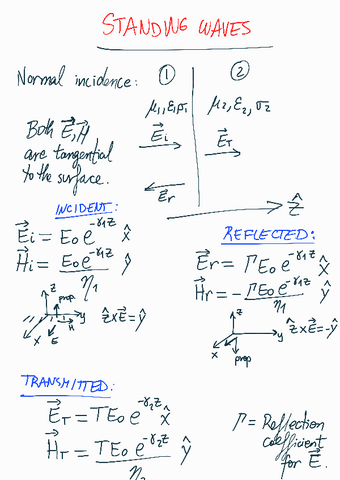 STANDING WAVES
Normal incidence: ① ②
μ₁,ε₁σ₁ μ₂,ε₂,σ₂
Both E⃗,H⃗
are tangential
to the surface.
E⃗i E⃗T
E⃗r
ẑ
INCIDENT:
E⃗i = E₀e^-γ₁z x̂
H⃗i = E₀e^-γ₁z/η₁ ŷ
z prop y H E x
ẑ×E⃗=ŷ
REFLECTED:
E⃗r = ΓE₀e^-γ₁z x̂
H⃗r = -ΓE₀e^-γ₁z/η₁ ŷ
z y x prop
ẑ×E⃗=-ŷ
TRANSMITTED:
E⃗T = TE₀e^-γ₂z x̂
H⃗T = TE₀e^-γ₂z/η₂ ŷ
Γ = Reflection
coefficient
for E⃗.